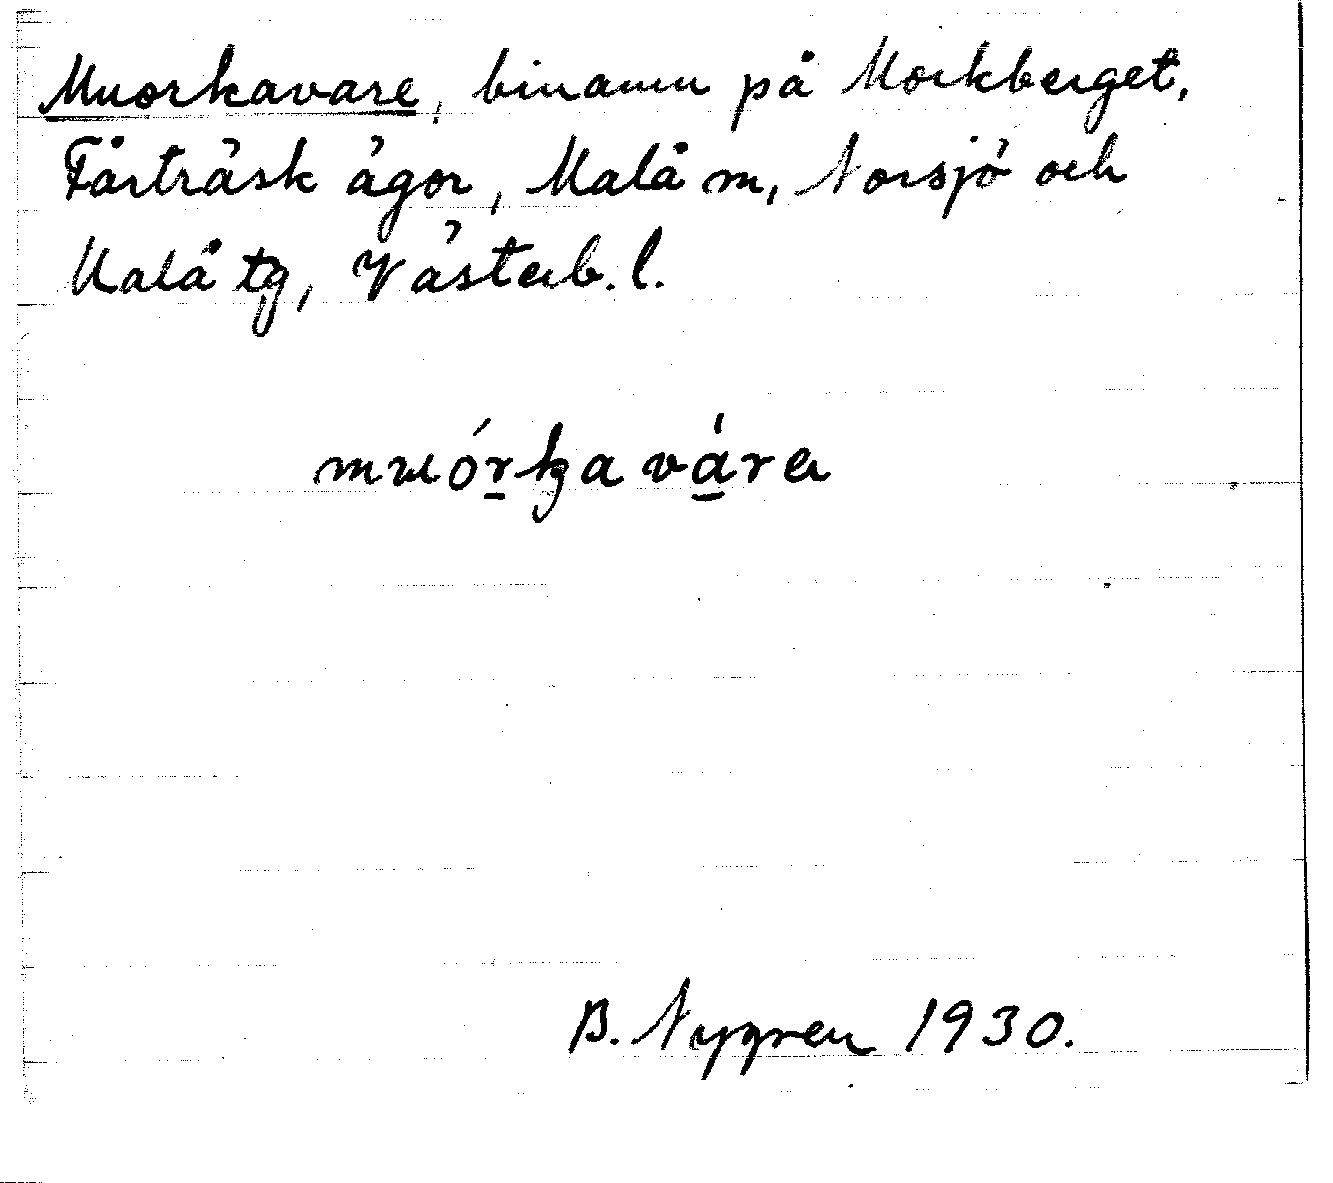 Muorkavare, binamn på Morkberget,
Fårträsk ägor, Malå m, Norsjö och
Malå tg, Västerb. l.
muórkavára
B. Nygren 1930.